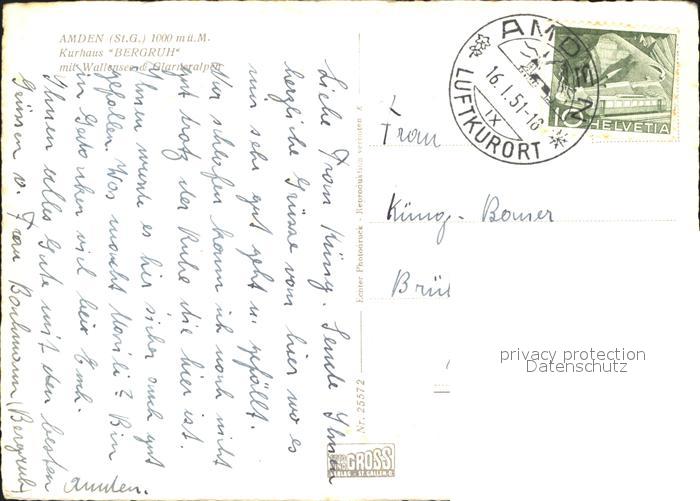 AMDEN (St.G.) 1000 m ü.M.
Kurhaus "BERGRUH"
mit Wallensee & Glarneralpen
Liebe Frau Küng. Sende Ihnen
herzliche Grüsse von hier wo es
mir sehr gut geht u. gefällt.
Nur schlafen kann ich noch nicht
gut trotz der Ruhe die hier ist.
Ihnen würde es hier sicher auch gut
gefallen. Was macht Marili? Bin
in Gedanken viel bei Euch.
Ihnen alles Gute mit den besten
Grüssen v. Frau Bachmann, Bergruh
Amden.
Echter Photodruck - Reproduktion verboten
Nr. 25572
GROSS
AMDEN
16.1.51-18
IX
LUFTKURORT
10 HELVETIA
Frau
Küng-
Brü
privacy protection
Datenschutz